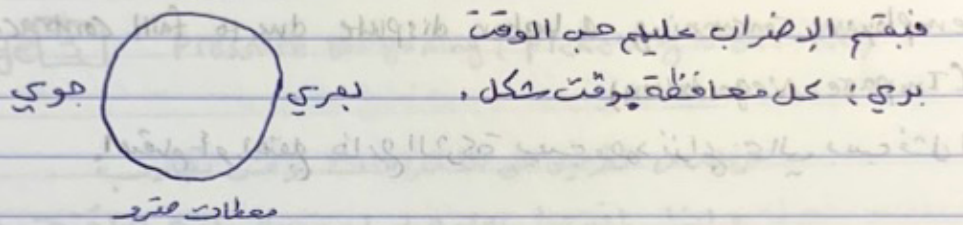 فبقسم الإضراب عليهم حسب الوقت
بري : كل محافظة بوقت شكل .
بحري
جوي
محطات مترو